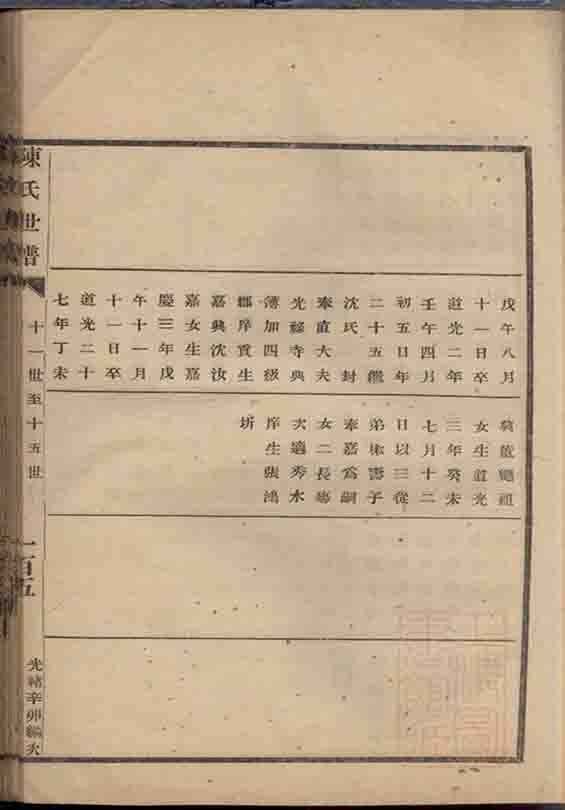 戊午八月
十一日卒
道光二年
壬午四月
初五日年
二十五繼
沈氏 封
奉直大夫
光祿寺典
簿加四級
郡庠貢生
嘉興沈汝
嘉女生嘉
慶三年戊
午十一月
十一日卒
道光二十
七年丁未
颺祖
女生道光
三年癸未
七月十二
日以三從
弟 子
奉嘉爲嗣
女二長
次適秀水
庠生張鴻
圻
陳氏世譜
十一世至十五世
一百五
光緒辛卯編次